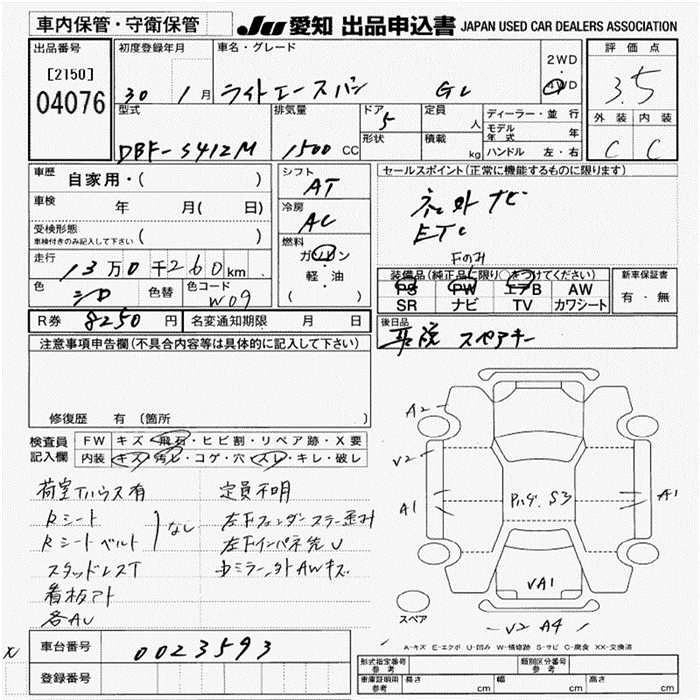 車内保管・守衛保管 JU 愛知 出品申込書 JAPAN USED CAR DEALERS ASSOCIATION
出品番号 [2150] 04076
初度登録年月 30 1月
車名・グレード ライトエースバン GL
2WD 4WD
評価点 3.5
外装 内装
C C
型式 DBF-S412M
排気量 1500 CC
ドア 5 形状
定員 人 積載 kg
ディーラー・並行
モデル 年
ハンドル 左・右
車歴 自家用・( )
車検 年 月( 日)
受検形態 ( )
車検付きのみ記入して下さい
走行 13万0千260km
色 シロ 色替 色コード W09
R券 8250円 名変通知期限 月 日
シフト AT
冷房 AC
燃料 ガソリン
軽・油
( )
セールスポイント(正常に機能するものに限ります)
ナビ
ETC
Fのみ
装備品(純正品に限り○をつけてください)
PS PW エアB AW
SR ナビ TV カワシート
新車保証書
有・無
後日品
スペアキー
注意事項申告欄(不具合内容等は具体的に記入して下さい)
修復歴 有(箇所 )
検査員記入欄
FW キズ・飛石・ヒビ割・リペア跡・X要
内装 キズ・汚レ・コゲ・穴・スレ・キレ・破レ
荷室Tハウス有
Rシート
Rシートベルト
なし
スタッドレスT
看板アト
各AU
定員不明
左Fフェンダーステー歪み
左Fインパネ先U
ミラー、外AWキズ
A2
V2
A1
A1
S3
VA1
V2 A4
スペア
A-キズ E-エクボ U-凹み W-補修跡 S-サビ C-腐食 XX-交換済
X
車台番号 0023593
登録番号
型式指定番号 参考 類別区分番号 参考
車庫証明用 参考 長さ cm 幅 cm 高さ cm